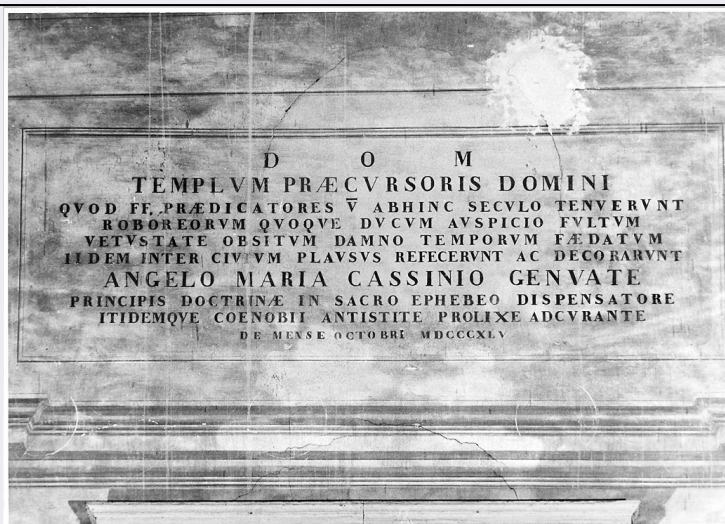 D O M
TEMPLVM PRÆCVRSORIS DOMINI
QVOD FF. PRÆDICATORES V̅ ABHINC SECVLO TENVERVNT
ROBOREORVM QVOQVE DVCVM AVSPICIO FVLTVM
VETVSTATE OBSITVM DAMNO TEMPORVM FÆDATVM
IIDEM INTER CIVIVM PLAVSVS REFECERVNT AC DECORARVNT
ANGELO MARIA CASSINIO GENVATE
PRINCIPIS DOCTRINÆ IN SACRO EPHEBEO DISPENSATORE
ITIDEMQVE COENOBII ANTISTITE PROLIXE ADCVRANTE
DE MENSE OCTOBRI MDCCCXLV